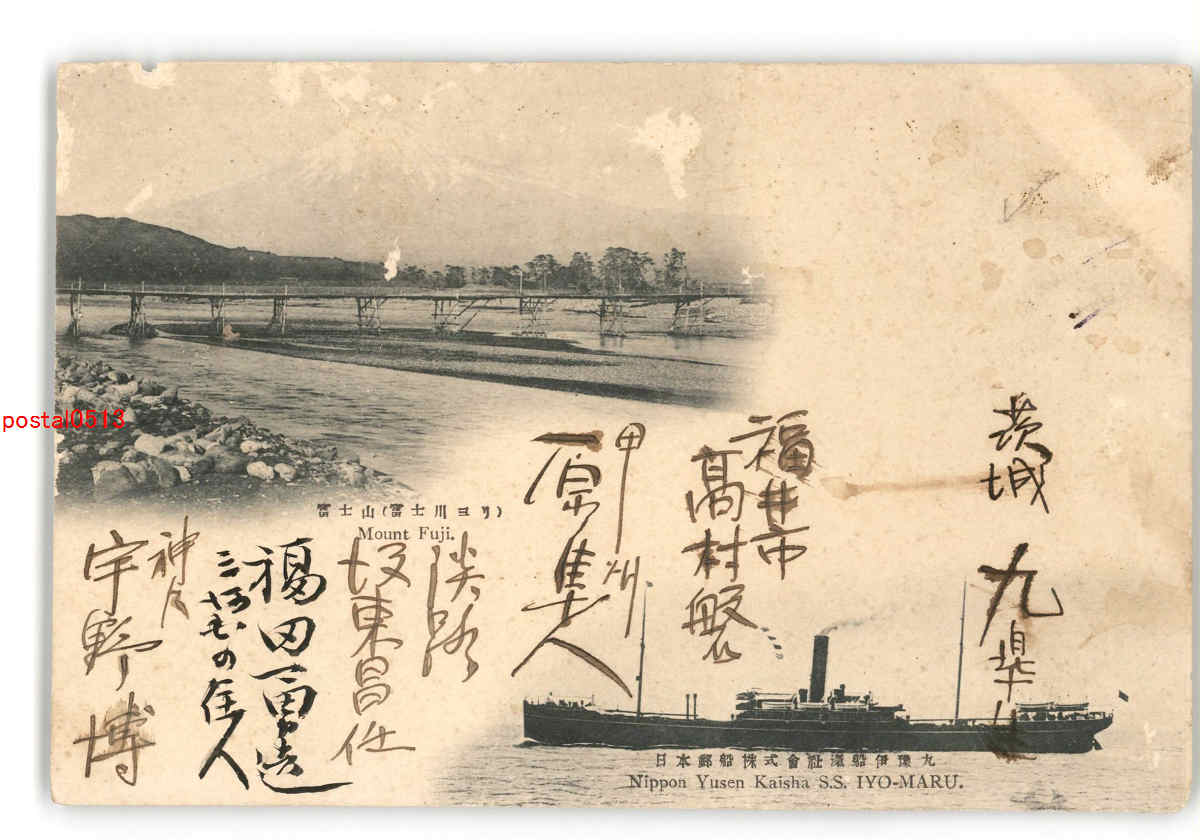 茨城 九皐生
福井市
高村繁
甲州
原隼人
淡路
坂東昌住
福田一男造
の住人
神戸
宇野博
富士山(富士川ヨリ)
Mount Fuji.
日本郵船株式會社滊船伊豫丸
Nippon Yusen Kaisha S.S. IYO-MARU.
postal0513